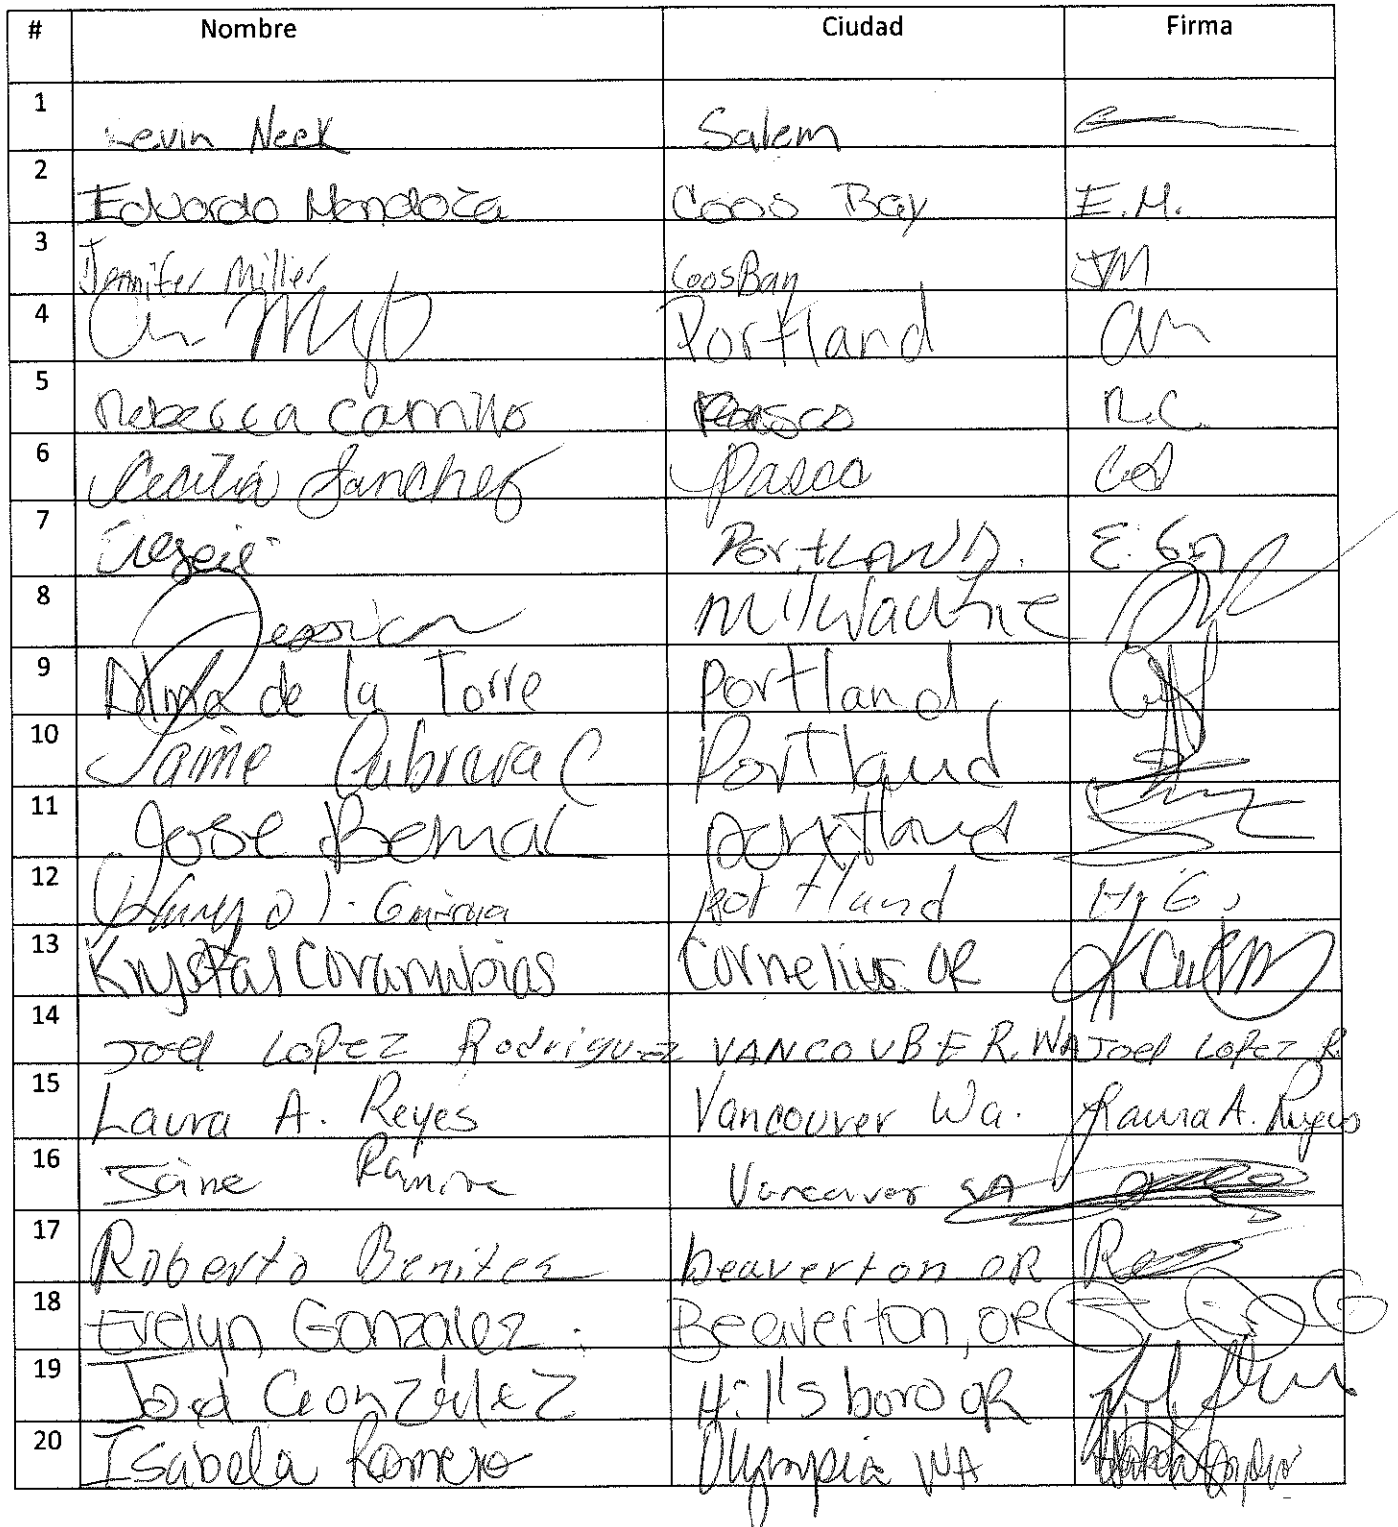 # Nombre Ciudad Firma
1 Kevin Neek Salem
2 Eduardo Mendoza Coos Bay E.M.
3 Jennifer Miller Coos Bay JM
4 Portland
5 Rebecca Carrillo Pasco R.C.
6 Cecilia Sanchez Pasco CS
7 Portland.
8 Jessica Milwaukie
9 Alma de la Torre Portland
10 Jaime Portland
11 Jose Bernal Portland
12 Portland H. G.
13 Krystal Covarrubias Cornelius OR
14 Joel Lopez Rodriguez VANCOUBER. WA Joel Lopez R
15 Laura A. Reyes Vancouver Wa. Laura A. Reyes
16 Vancouver WA
17 Roberto Benitez beaverton OR
18 Evelyn Gonzalez. Beaverton, OR
19 Joel González Hillsboro OR
20 Isabela Romero Olympia WA